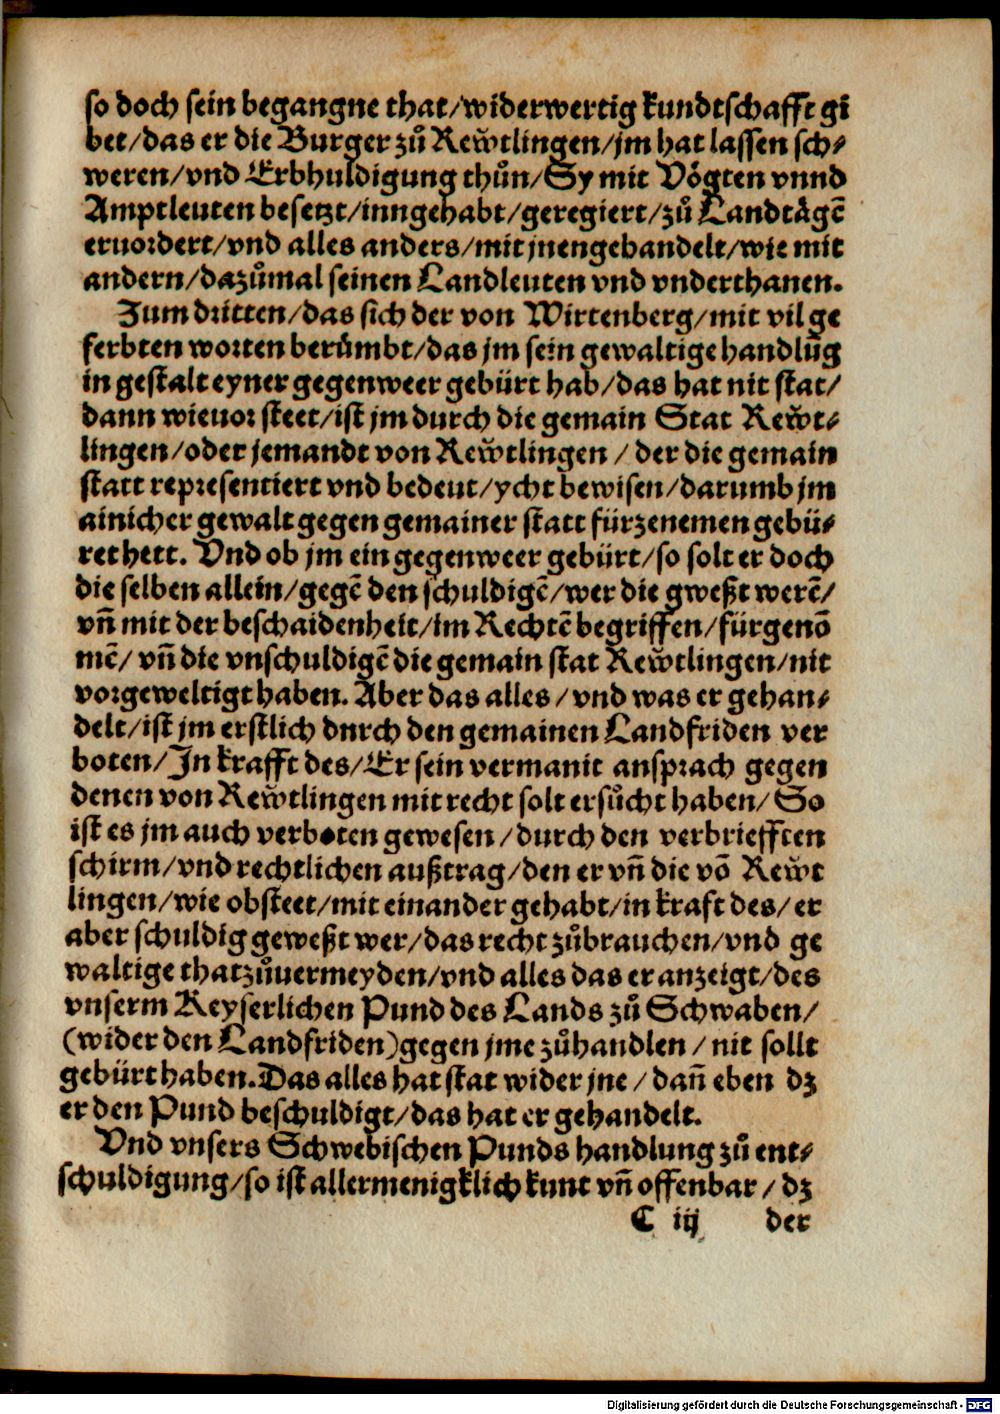 so doch sein begangne that/widerwertig kundtschafft gi
bet/das er die Burger zů Rew̌tlingen/jm hat lassen sch⸗
weren/vnd Erbhuldigung thůn/Sy mit Vögten vnnd
Amptleuten besetzt/inngehabt/geregiert/zů Landtägē
eruordert/vnd alles anders/mit jnengehandelt/wie mit
andern/dazůmal seinen Landleuten vnd vnderthanen.
Zum dritten/das sich der von Wirtenberg/mit vil ge
ferbten worten berůmbt/das jm sein gewaltige handlūg
in gestalt eyner gegenweer gebürt hab/das hat nit stat/
dann wieuor steet/ist jm durch die gemain Stat Rew̌t⸗
lingen/oder jemandt von Rew̌tlingen / der die gemain
statt representiert vnd bedeut/ycht bewisen/darumb jm
ainicher gewalt gegen gemainer statt fürzenemen gebü⸗
ret hett. Vnd ob jm ein gegenweer gebürt/so solt er doch
die selben allein/gegē den schuldigē/wer die gweßt werē/
vn̄ mit der beschaidenheit/im Rechtē begriffen/fürgenō
mē/ vn̄ die vnschuldigē die gemain stat Rew̌tlingen/nit
vorgeweltigt haben. Aber das alles / vnd was er gehan⸗
delt/ist jm erstlich dnrch den gemainen Landfriden ver
boten/In krafft des/Er sein vermanit ansprach gegen
denen von Rew̌tlingen mit recht solt ersůcht haben/ So
ist es jm auch verboten gewesen / durch den verbriefften
schirm/vnd rechtlichen außtrag/den er vn̄ die vō Rew̌t
lingen/wie obsteet/mit einander gehabt/in kraft des/ er
aber schuldig geweßt wer/das recht zůbrauchen/vnd ge
waltige that zůuermeyden/vnd alles das er anzeigt/des
vnserm Keyserlichen Pund des Lands zů Schwaben/
(wider den Landfriden)gegen jme zůhandlen / nit sollt
gebürt haben.Das alles hat stat wider jne / dan̄ eben dz
er den Pund beschuldigt/das hat er gehandelt.
Vnd vnsers Schwebischen Punds handlung zů ent⸗
schuldigung/so ist allermenigklich kunt vn̄ offenbar / dz
C iij der
Digitalisierung gefördert durch die Deutsche Forschungsgemeinschaft - DFG